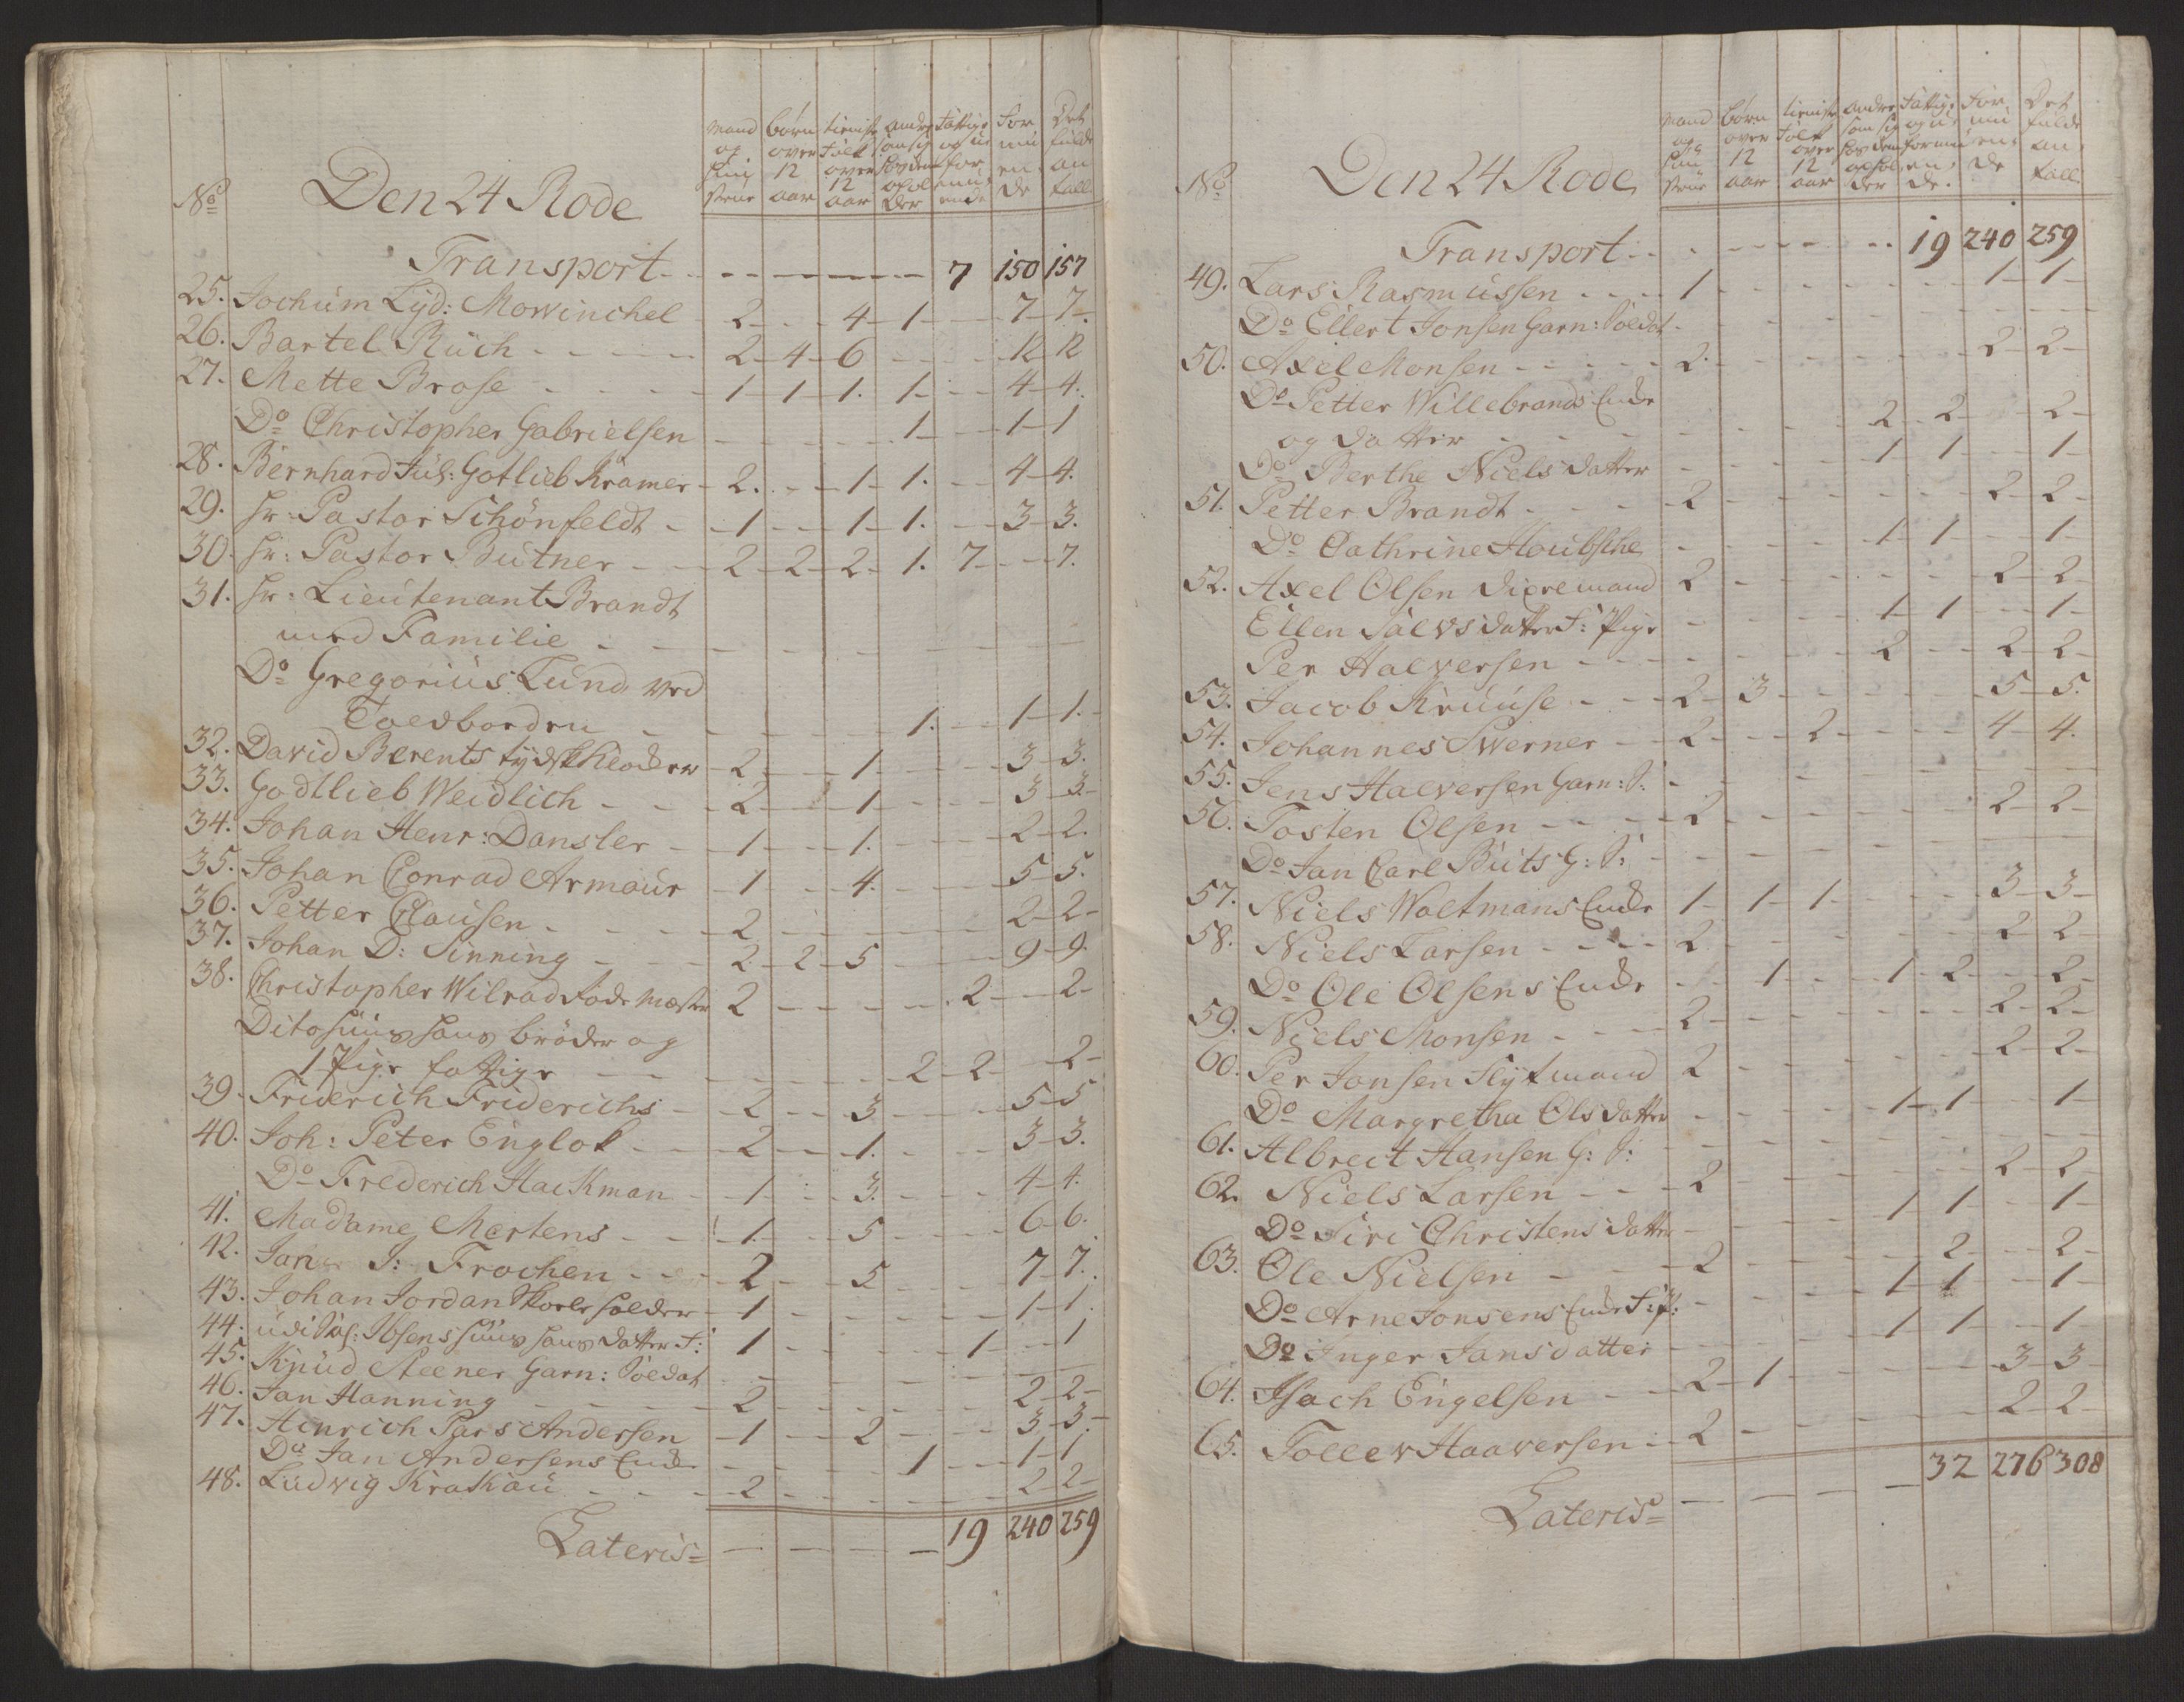 No
Den 24 Rode
mand og hustrue | børn over 12 aar | tieniste folk over 12 aar | andre som sig hos dem opholder | fattige og uformuende | formuende | Det fulde antall
Transport - - - - 7 150 157
25. Jochum Lyd: Mowinchel - 2 - - 4 - 1 - - 7 - 7.
26. Bartel Ruch - - - - 2 - 4 - 6 - - - 12 12
27. Mette Brose - - - - 1 - 1 - 1. 1. - - 4 - 4.
Do Christopher Gabrielsen - - - - 1 - - 1 - 1
28. Bernhard Jul: Gotlieb Kramer - 2. - - 1 - 1. - - 4 - 4.
29. Hr: Pastor Schönfeldt - - 1 - - 1 - 1. - - 3 - 3.
30. Hr: Pastor Butner - - 2 - 2 - 2 - 1. 7 - - 7.
31. Hr: Lieutenant Brandt
med Familie - - - - - -
Do Gregorius Lund ved
Toldboeden - - - - 1. - - 1 - 1.
32. David Berents tydsk kloder - 2 - - 1 - - - 3 - 3.
33. Godtlieb Weidlich - - - 2 - - 1 - - - 3 - 3.
34. Johan Henr: Dansler - - 1 - - 1. - - - 2 - 2.
35. Johan Conrad Armaur - 1 - - 4. - - - 5 - 5.
36. Petter Clausen - - - - 2 - - - - - 2 - 2 -
37. Johan D: Sinning - - - 2 - 2 - 5 - - - 9 - 9.
38. Christopher Wilrad Rode Mester 2 - - - - 2 - - 2 -
Dito huus hans brøder og
1 Pige fattige - - - - - 2 - 2 - - 2 -
39. Friderich Friderichs - - 2 - - 3 - - - 5 - 5
40. Joh: Peter Englok - - 2 - - 1. - - - 3 - 3.
Do Frederich Hackman - - 1 - - 3. - - - 4 - 4.
41. Madame Martens - - 1. - - 5 - - - 6 - 6.
42. Jan J: Frochen - - - 2 - - 5 - - - 7 - 7.
43. Johan Jordan Skoele holder - 1 - - - - - 1 - 1.
44. udi Ibsens huus hans datter F: 1 - - - - 1 - - 1
45. Knud Steener Garn: Soldat - - - - - -
46. Jan Hanning - - - - 2 - - - - - 2 - 2 -
47. Hinrich Pars Andersen - 1 - - 2 - - - 3 - 3 -
Do Jan Andersens Enke - - - - 1 - - 1 - 1
48. Ludvig Krakau - - - - 2 - - - - - 2 - 2 -
Lateris = - - - - 19 240 259
No
Den 24 Rode
mand og hustrue | børn over 12 aar | tieniste folk over 12 aar | andre som sig hos dem opholder | fattige og uformuende. | formuende | Det fulde antall
Transport - - - - - 19 240 259
49. Lars Rasmussen - - - 1 - - - - - 1 - 1 -
Do Ellert Jonsen Garn: Soldat - - - - - -
50. Axel Monsen - - - - 2. - - - - - 2 - 2 -
Do Petter Willebrands Enke
og datter - - - - - 2 - 2 - - 2 -
Do Berthe Niels datter - - - - 1 1 - - 1 -
51. Petter Brandt - - - - 2 - - - - - 2 - 2 -
Do Cathrine Houbsche - - - - 1 - 1 - - 1 -
52. Axel Olsen dieremand 2 - - - - - 2 - 2 -
Ellen Salvsdatter F: Pige - - - - 1 - 1 - - 1 -
Per Halversen - - - - - - 2 - - 2 - 2 -
53. Jacob Kruuse - - - 2 - 3 - - - - 5 - 5.
54. Johannes Swerner - - 2 - - 2 - - - 4 - 4.
55. Jens Halversen Garn: S: - - - - - -
56. Tosten Olsen - - - - 2 - - - - - 2 - 2 -
Do Jan Carl Buts G: S: - - - - - -
57. Niels Woltmans Enke 1 - 1 - 1 - - - 3 - 3 -
58. Niels Larsen - - - - 2. - - - - - 2 - 2 -
Do Ole Olsens Enke - - 1 - - 1 - 2 - - 2 -
59. Niels Monsen - - - 2 - - - - - 2 - 2 -
60. Per Jonsen Flytmand 2 - - - - - 2 - 2 -
Do Margretha Olsdatter - - - - 1 - 1 - - 1 -
61. Albrect Hansen G: S: - - - - - -
62. Niels Larsen - - - 2 - - - - - 2 - 2 -
Do Siri Christensdatter - - - - 1 1 - - 1 -
63. Ole Nielsen - - - 2 - - - - 2 - - 2 -
Do Arne Jonsens Enke F: P: - - - - 1 1 - - 1 -
Do Inger Jansdatter - - - - 1 1 - - 1
64. Isach Engelsen - - 2 - 1 - - - - 3 - 3 -
65. Tollev Haaversen - - 2 - - - - - 2 - 2 -
Lateris = - - - - 32 276 308